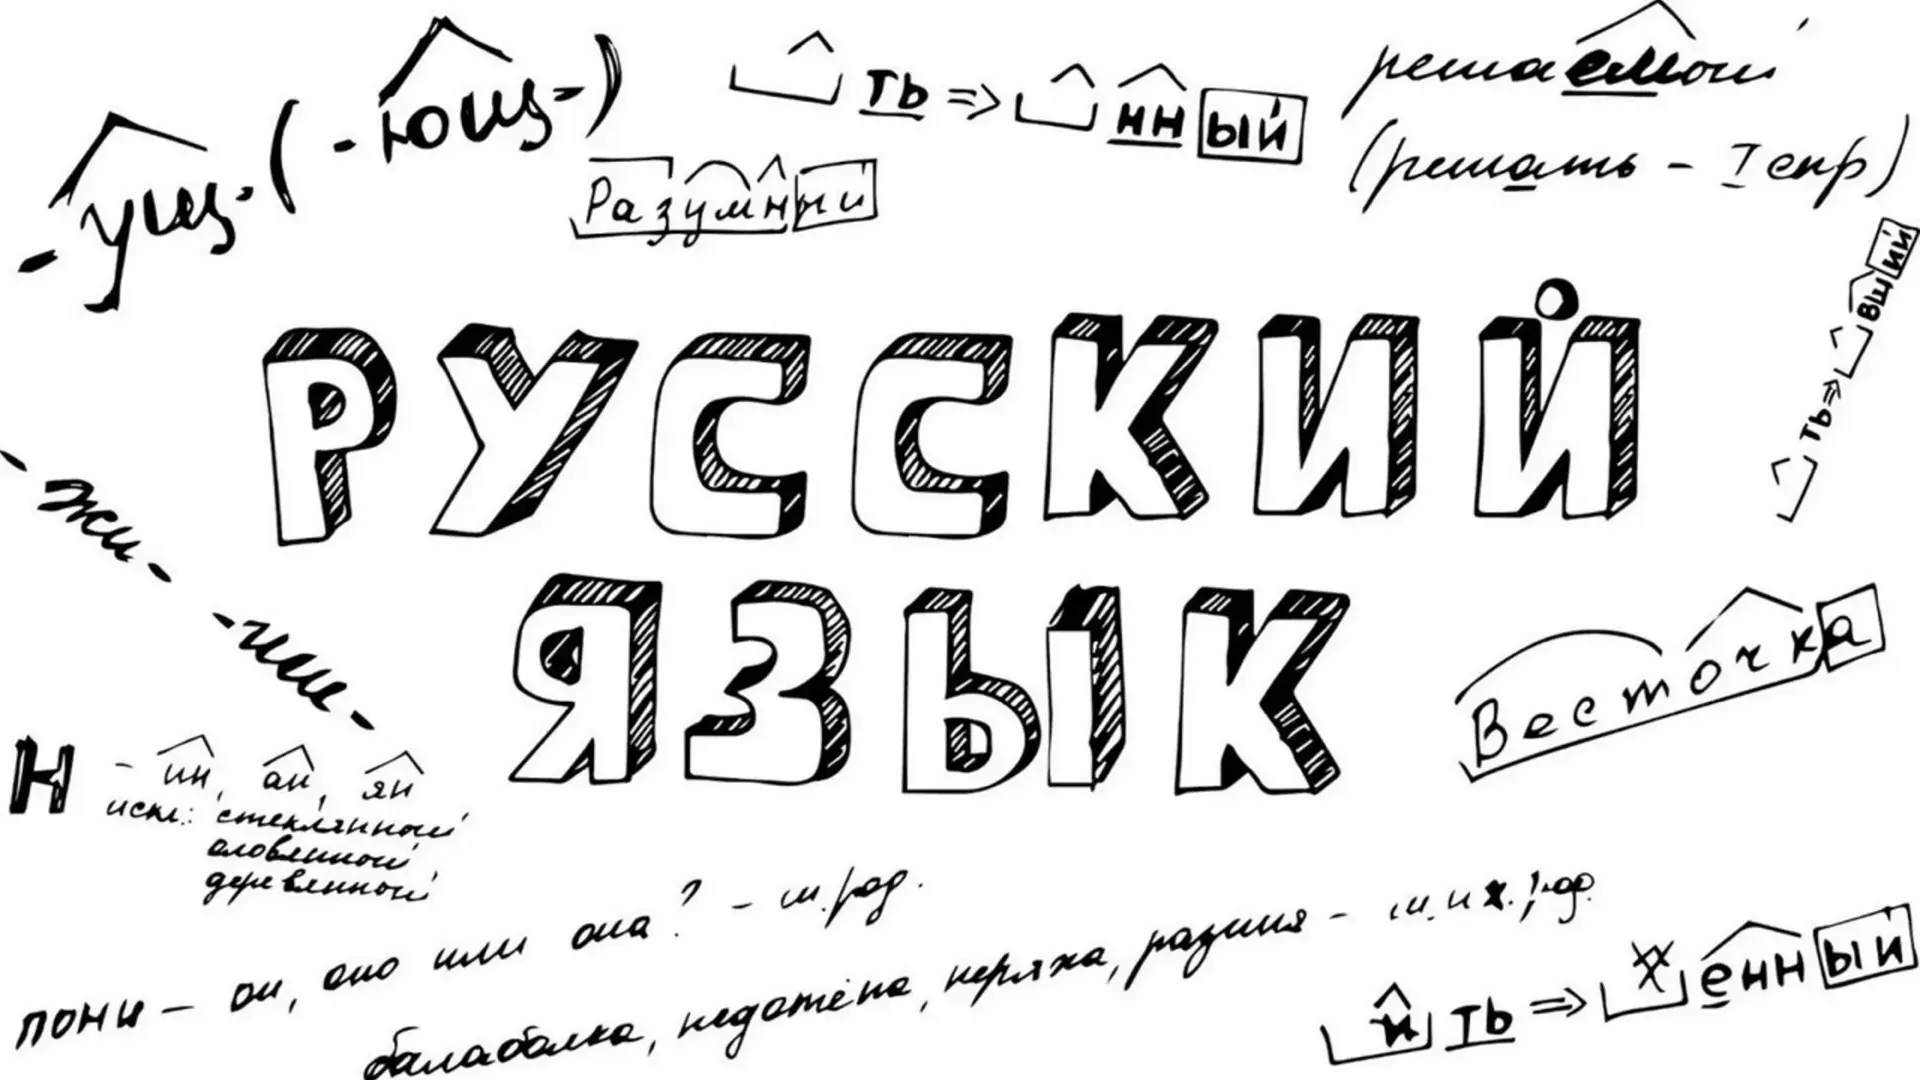 -ущ-(-ющ-)
ть => нный
решаемой
(решать - I спр)
Разумный
ть => вший
РУССКИЙ
ЯЗЫК
-жи-
-ши-
Весточка
Н - ин, ан, ян
искл.: стеклянной
оловянной
деревянной
пони - он, оно или она? - м.род.
балаболка, недотёпа, неряха, разиня - м. и ж. род.
и ть => енный